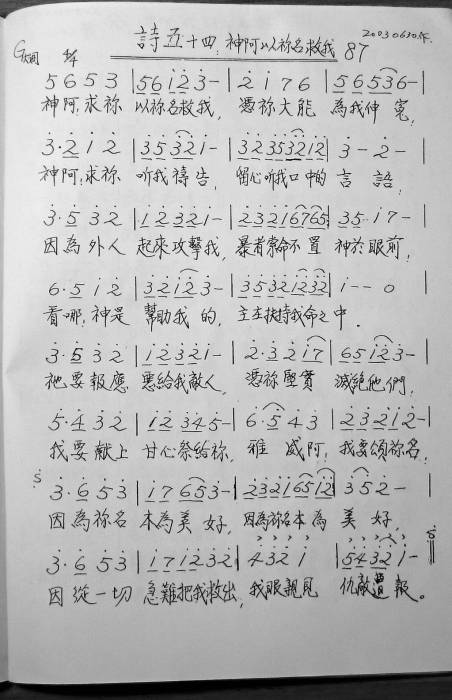 詩五十四:神阿以祢名救我 87 20030630作.
G調 4/4 5 6 5 3 | 5 6 1̇ 2̇ 3̇ - | 2̇ 1̇ 7 6 | 5 6 5 3 6 - |
神阿,求祢 以祢名救我, 憑祢大能 為我伸冤,
3̇·2̇ 1̇ 2̇ | 3̇ 5̇ 3̇ 2̇ 1̇ - | 3̇ 2̇ 3̇ 5̇ 3̇ 2̇ 1̇ 2̇ | 3̇ - 2̇ - |
神阿,求祢 听我禱告, 留心听我口中的 言語,
3̇·5̇ 3̇ 2̇ | 1̇ 2̇ 3̇ 2̇ 1̇ - | 2̇ 3̇ 2̇ 1̇ 6 7 6 5 | 3 5 1̇ 7 - |
因為外人 起來攻擊我, 暴者索命不置 神於眼前,
6·5 1̇ 2̇ | 3̇ 2̇ 1̇ 2̇ 3̇ - | 3̇ 5̇ 3̇ 2̇ 1̇ 2̇ 3̇ 2̇ | 1̇ - - 0
看哪,神是 幫助我的, 主在扶持我命之中.
3̇·5̇ 3̇ 2̇ | 1̇ 2̇ 3̇ 2̇ 1̇ - | 2̇·3̇ 2̇ 1̇ 7 | 6 5 1̇ 2̇ 3̇ - |
祂要報應 惡給我敵人, 憑祢堅實 滅絕他們,
5̇·4̇ 3̇ 2̇ | 1̇ 2̇ 3̇ 4̇ 5̇ - | 6̇·5̇ 4̇ 3̇ | 2̇ 3̇ 2̇ 1̇ 2̇ - |
我要獻上 甘心祭給祢, 雅威阿,我要頌祢名,
3̇·6̇ 5̇ 3̇ | 1̇ 7 6 5 3 - | 2̇ 3̇ 2̇ 1̇ 6 5 1̇ 2̇ | 3̇ 5̇ 2̇ - |
因為祢名 本為美好, 因為祢名本為 美好,
3̇·6̇ 5̇ 3̇ | 1̇ 7 1̇ 2̇ 3̇ 2̇ | 4̇ 3̇ 2̇ 1̇ | 5̇ 4̇ 3̇ 2̇ 1̇ - ‖
因從一切 急難把我救出, 我眼親見 仇敵遭報。